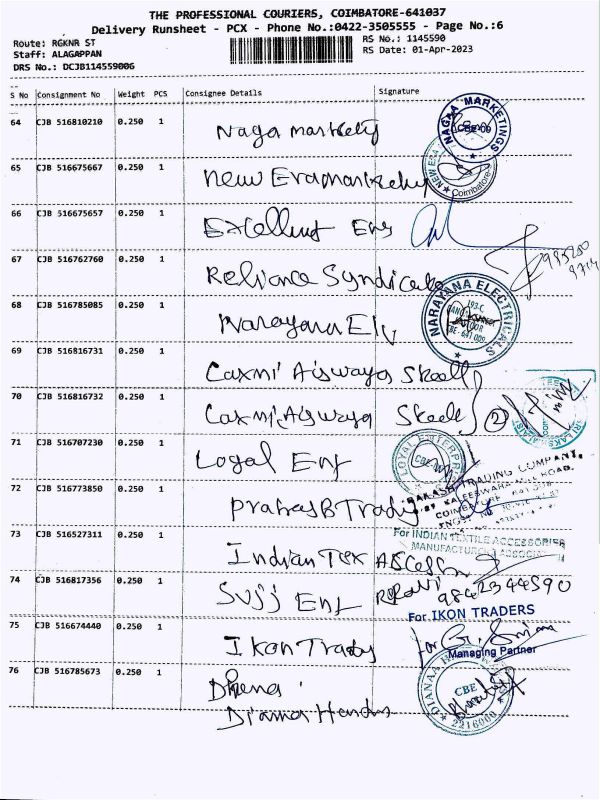 THE PROFESSIONAL COURIERS, COIMBATORE-641037
Delivery Runsheet - PCX - Phone No.:0422-3505555 - Page No.:6
Route: RGKNR ST
RS No.: 1145590
Staff: ALAGAPPAN
RS Date: 01-Apr-2023
DRS No.: DCJB114559006
S No Consignment No Weight PCS Consignee Details Signature
64 CJB 516810210 0.250 1
Naga Markety
NAGAA MARKETINGS
65 CJB 516675667 0.250 1
New Era Markety
NEW ERA
Coimbatore
66 CJB 516675657 0.250 1
Excellent Ens
67 CJB 516762760 0.250 1
Reliance Syndicate
68 CJB 516785085 0.250 1
Narayana Ely
NARAYANA ELECTRICALS
193-C
CBE - 641 009
69 CJB 516816731 0.250 1
Laxmi Aiswaya Steel
70 CJB 516816732 0.250 1
Laxmi Aiswaya Steels 2
71 CJB 516707230 0.250 1
Loyal Ent
LOYAL ENTERPRI
CBE
72 CJB 516773850 0.250 1
Prakash Trady
PRAKASH TRADING COMPANY,
73 CJB 516527311 0.250 1
For INDIAN TEXTILE ACCESSORIES
MANUFACTURERS ASSOCIATION
Indian Tex Access
74 CJB 516817356 0.250 1
Sujj Ent
9842344590
For IKON TRADERS
75 CJB 516674440 0.250 1
Ikon Trady
for G.
Managing Partner
76 CJB 516785673 0.250 1
Dhena
Diana Handus
DIANAA
CBE
2216000